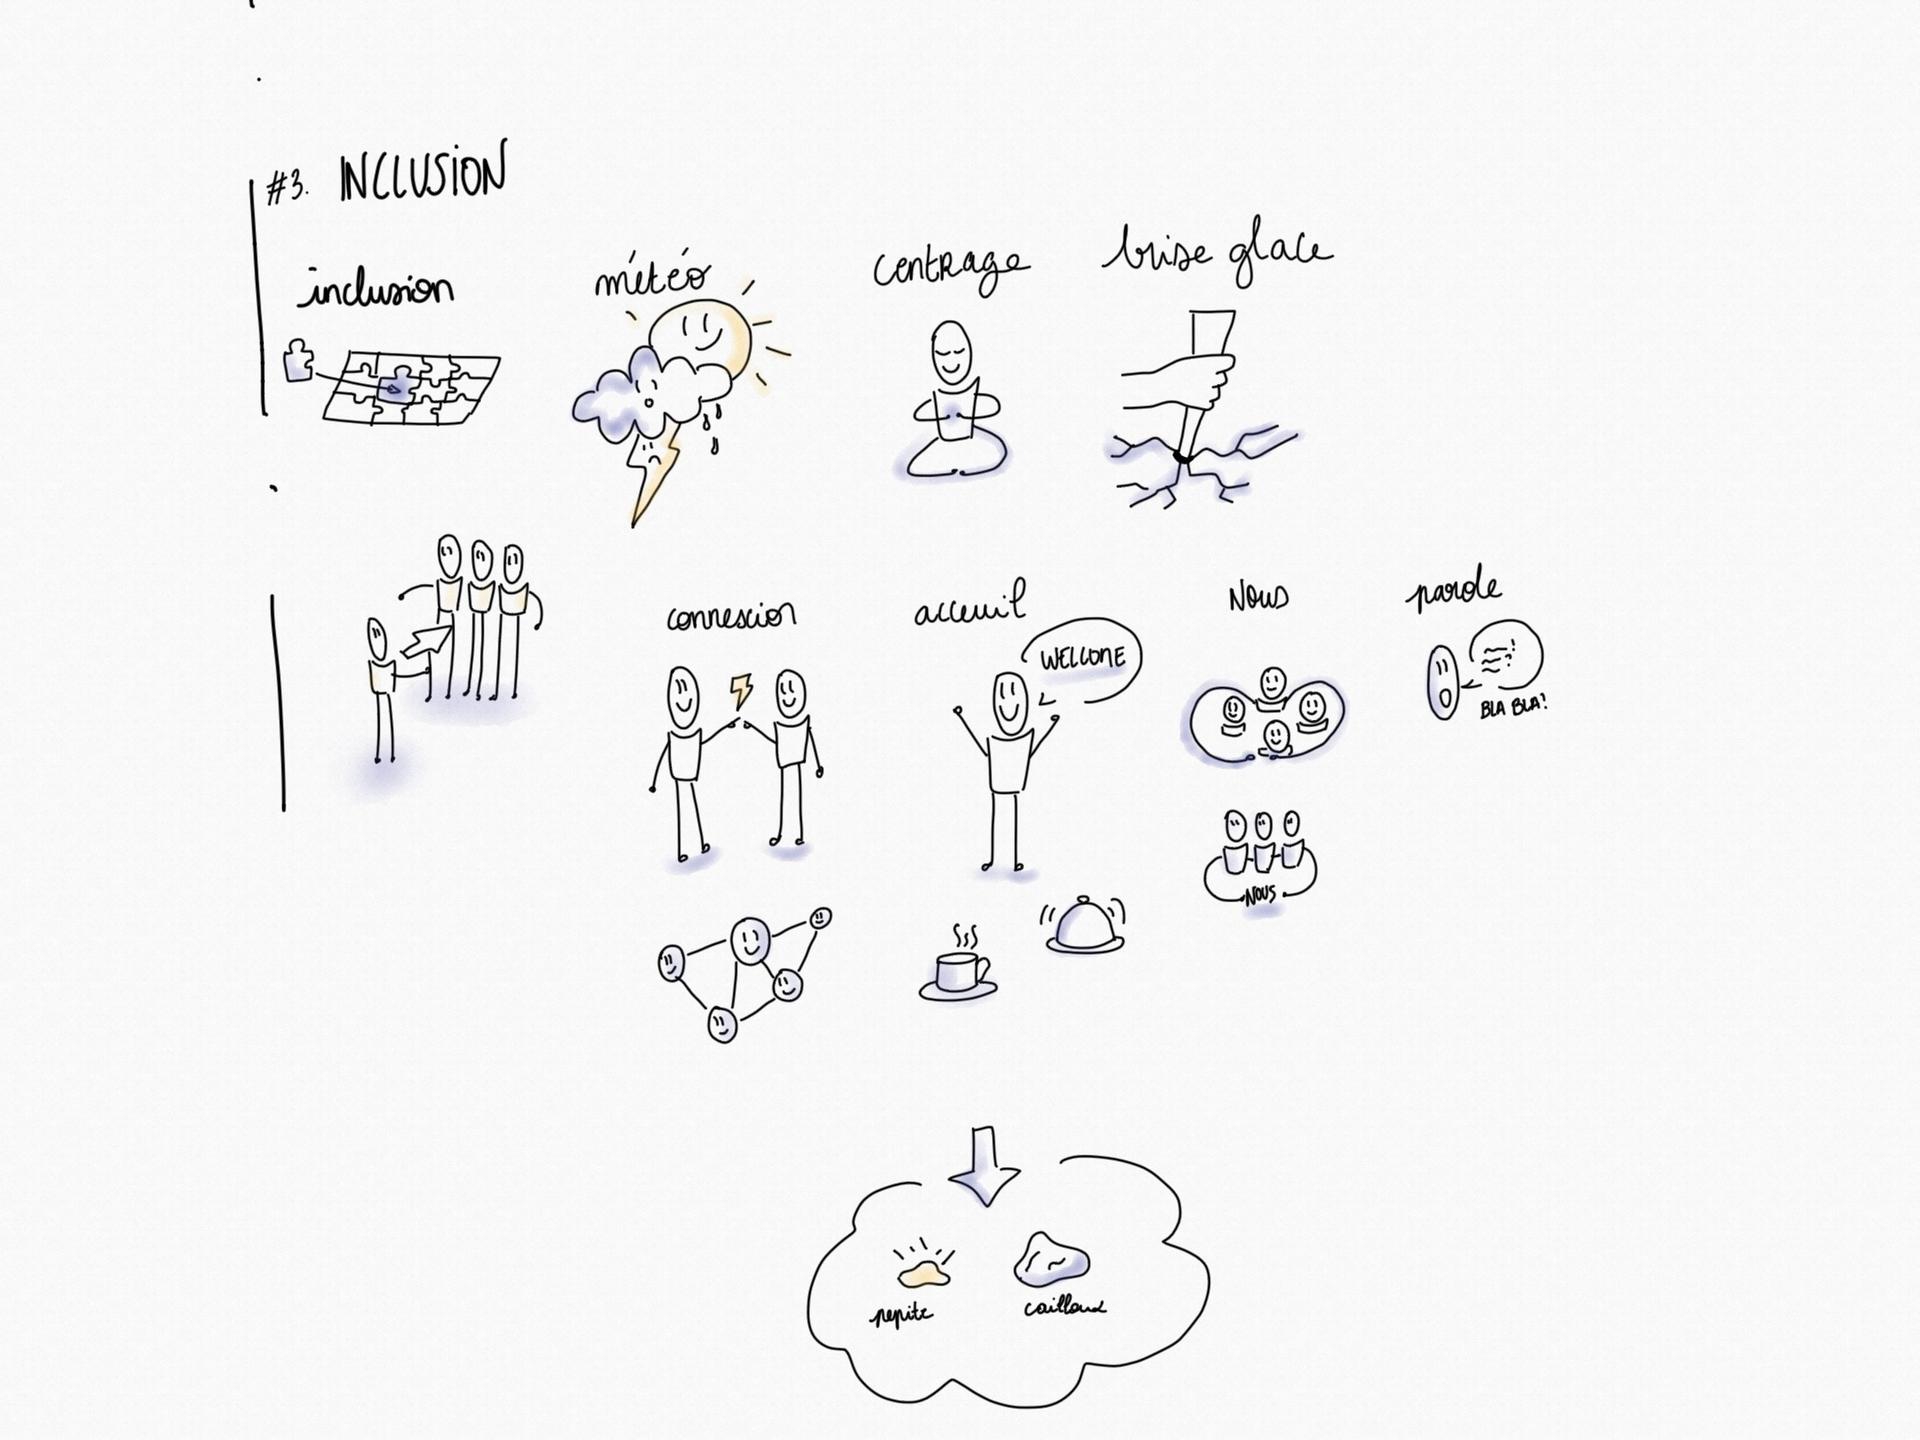 #3. INCLUSION
inclusion
météo
centrage
brise glace
connexion
acceuil
WELCOME
Nous
parole
BLA BLA!
NOUS
pepite
cailloux